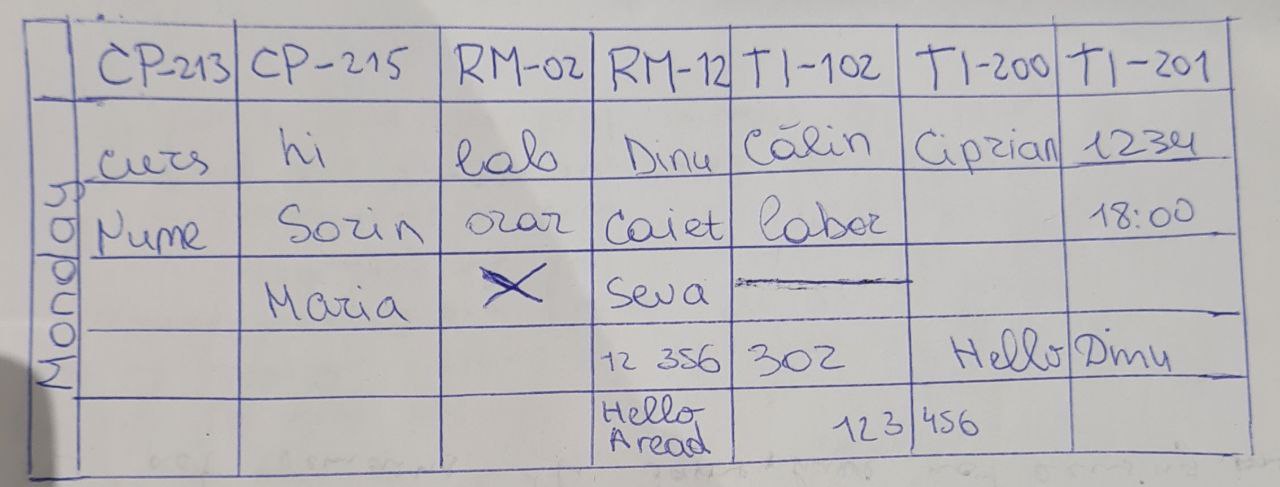 CP-213 CP-215 RM-02 RM-12 TI-102 TI-200 TI-201
Monday
curs hi lab Dinu Călin Ciprian 1234
Nume Sorin orar Caiet labor 18:00
Maria X Seva —
12 356 302 Hello Dinu
Hello
Aread 123 456